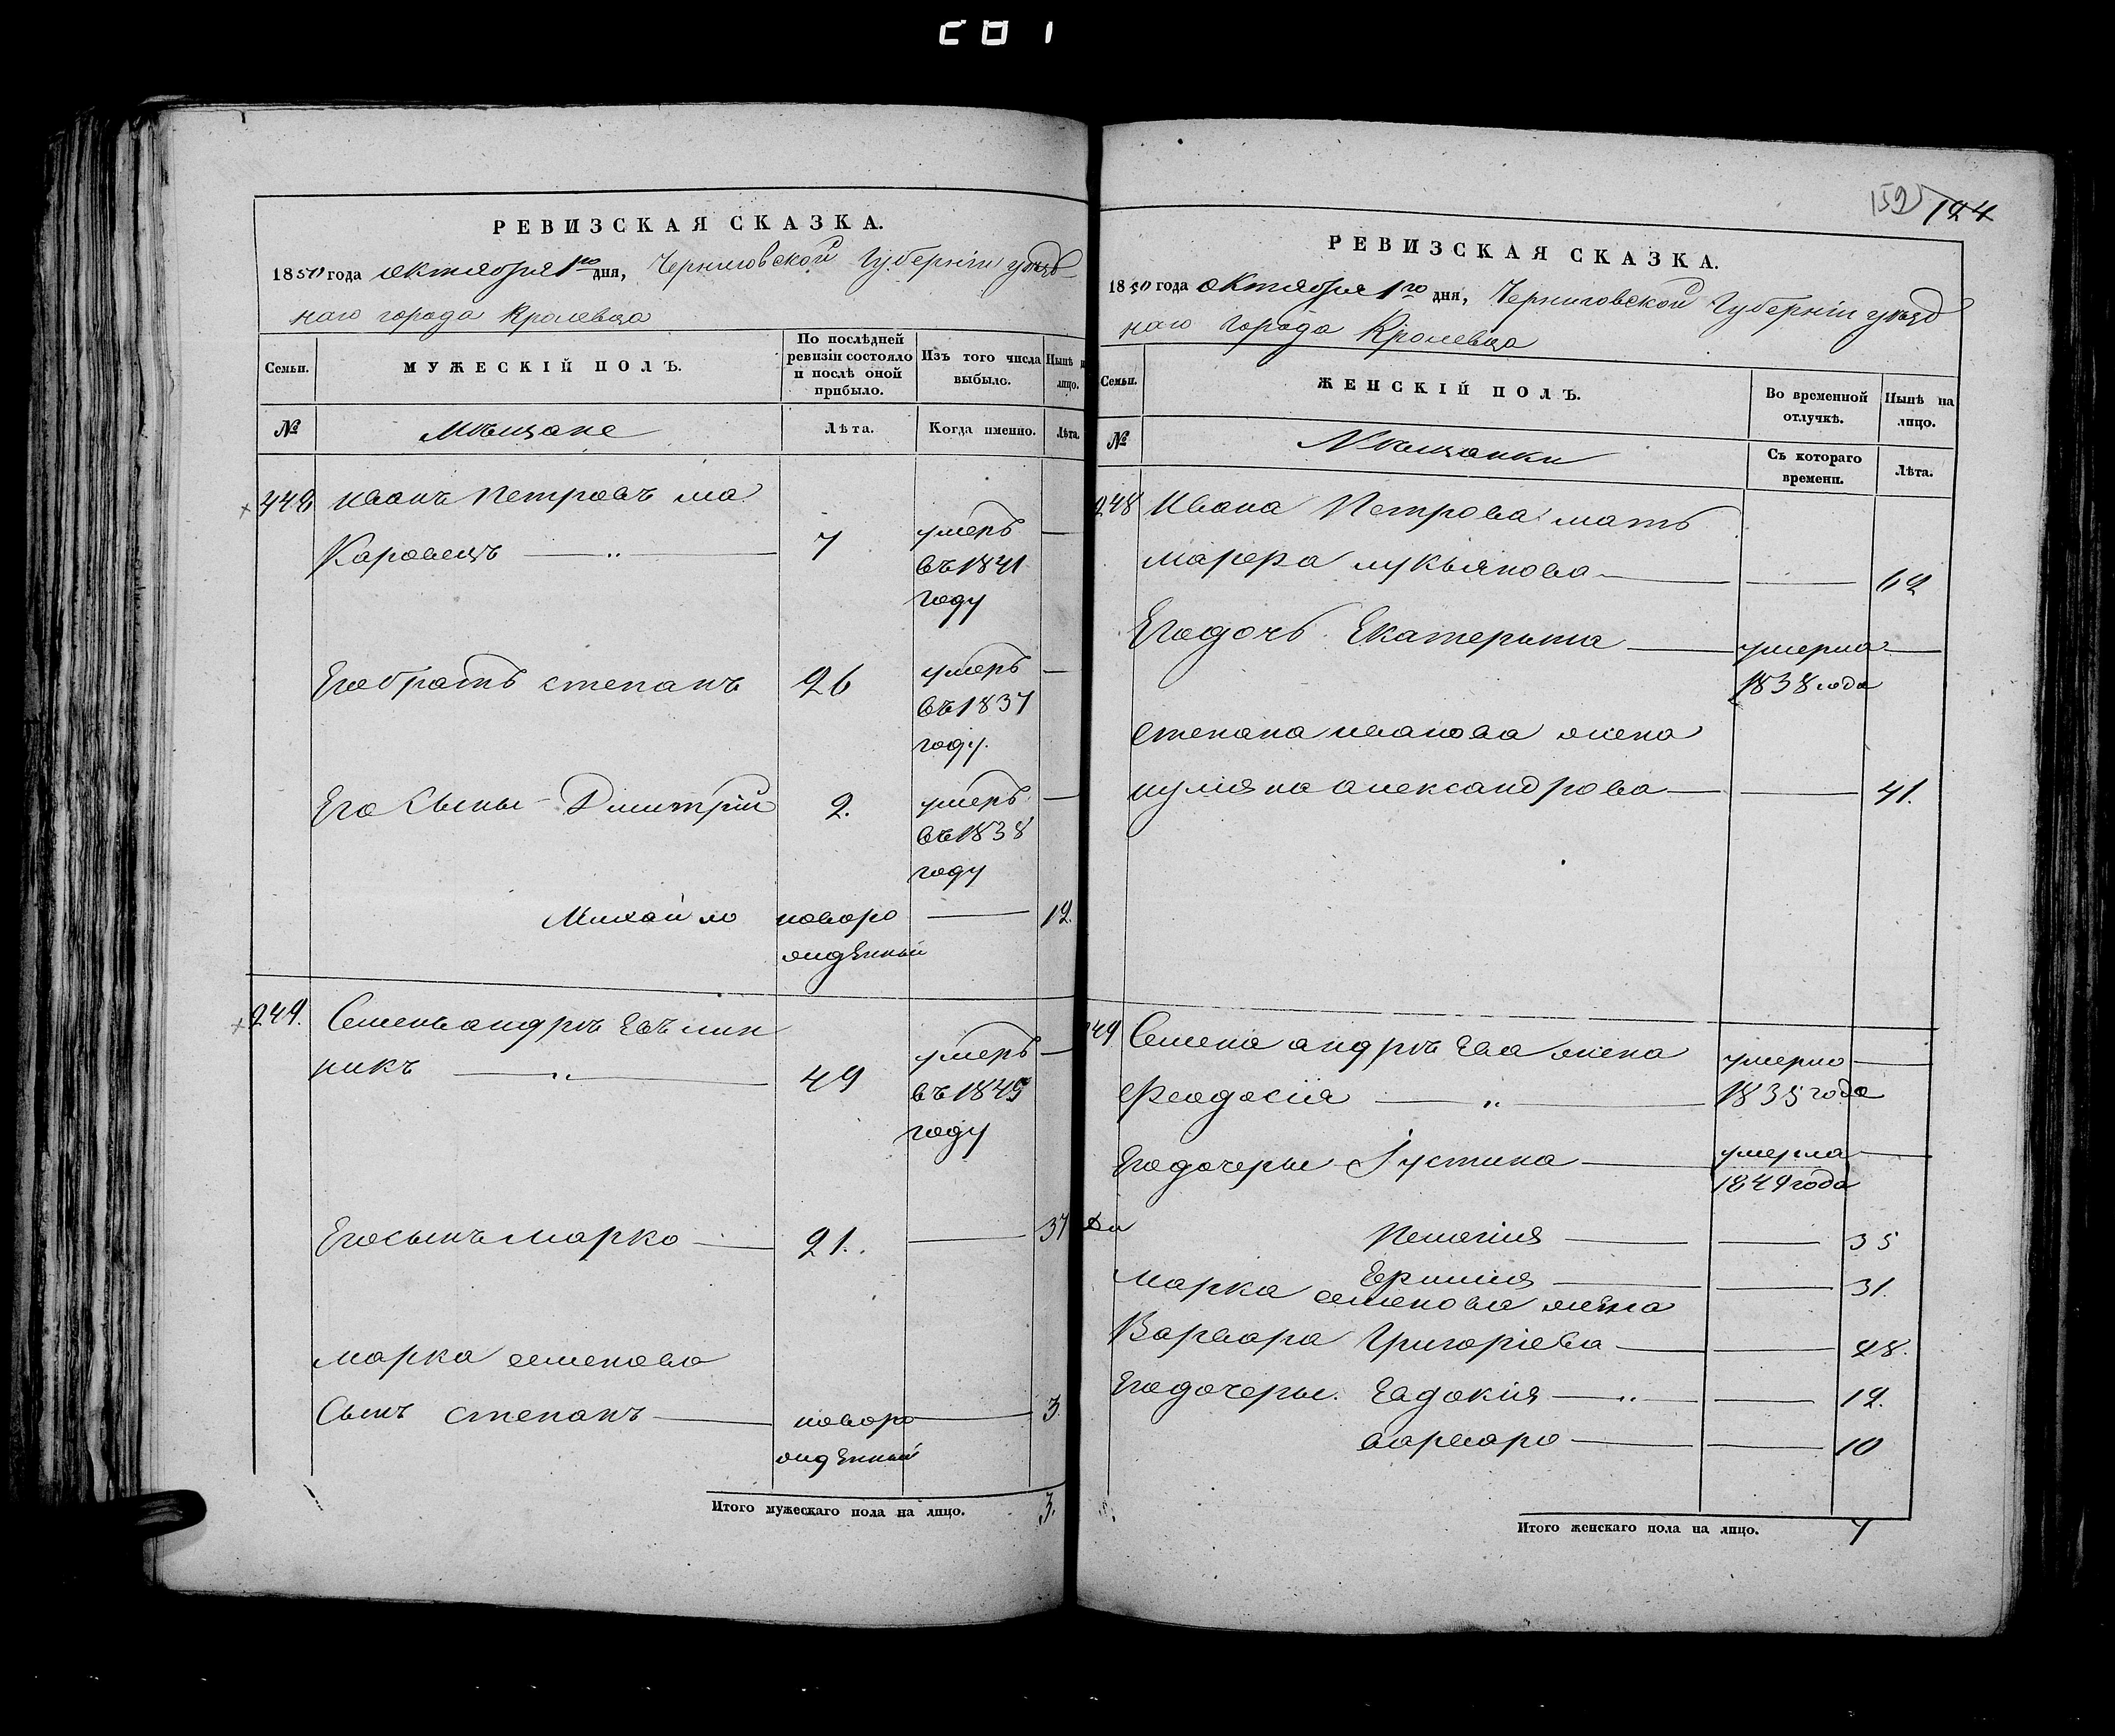 281
РЕВИЗСКАЯ СКАЗКА.
1850 года октября 1го дня, Черниговской Губерніи уѣзд
наго города Кролевца
Семьи.
МУЖЕСКІЙ ПОЛЪ.
По послѣдней ревизіи состояло и послѣ оной прибыло.
Изъ того числа выбыло.
Нынѣ н лицо.
№
Мѣщане
Лѣта.
Когда именно.
Лѣта.
248 Иванъ Петровъ Ма
каровецъ 7 умеръ
въ 1841
году
Его братъ Степанъ 26 умеръ
въ 1837
году.
Его Сыны Дмитрій 2. умеръ
въ 1838
году
Михайло новоро 12.
жидѣнный
249. Семенъ Андрѣевъ Лин
никъ 49 умеръ
въ 1849
году
Его сынъ Марко 21. 37
Марка Семенова
Сынъ Степанъ новоро 3.
жидѣнный
Итого мужескаго пола на лицо. 3.
152 124
РЕВИЗСКАЯ СКАЗКА.
1850 года октября 1го дня, Черниговской Губерніи уѣзд
наго города Кролевца
Семьи.
ЖЕНСКІЙ ПОЛЪ.
Во временной отлучкѣ.
Нынѣ на лицо.
№
Мѣщанки
Съ котораго времени.
Лѣта.
248 Ивана Петрова мать
Марфа Лукьянова 62
Его дочь Екатерина умерла
1838 года
Степана Иванова жена
Иулияна Александрова 41.
249 Семена Андрѣева жена умерла
Феодосія 1835 года
Его дочери Іустина умерла
1849 года
Пелагия 35
Ефимия 31.
Марка Семенова жена
Варвара Григоріева 28.
Его дочери Евдокия 12.
Варвара 10
Итого женскаго пола на лицо. 7